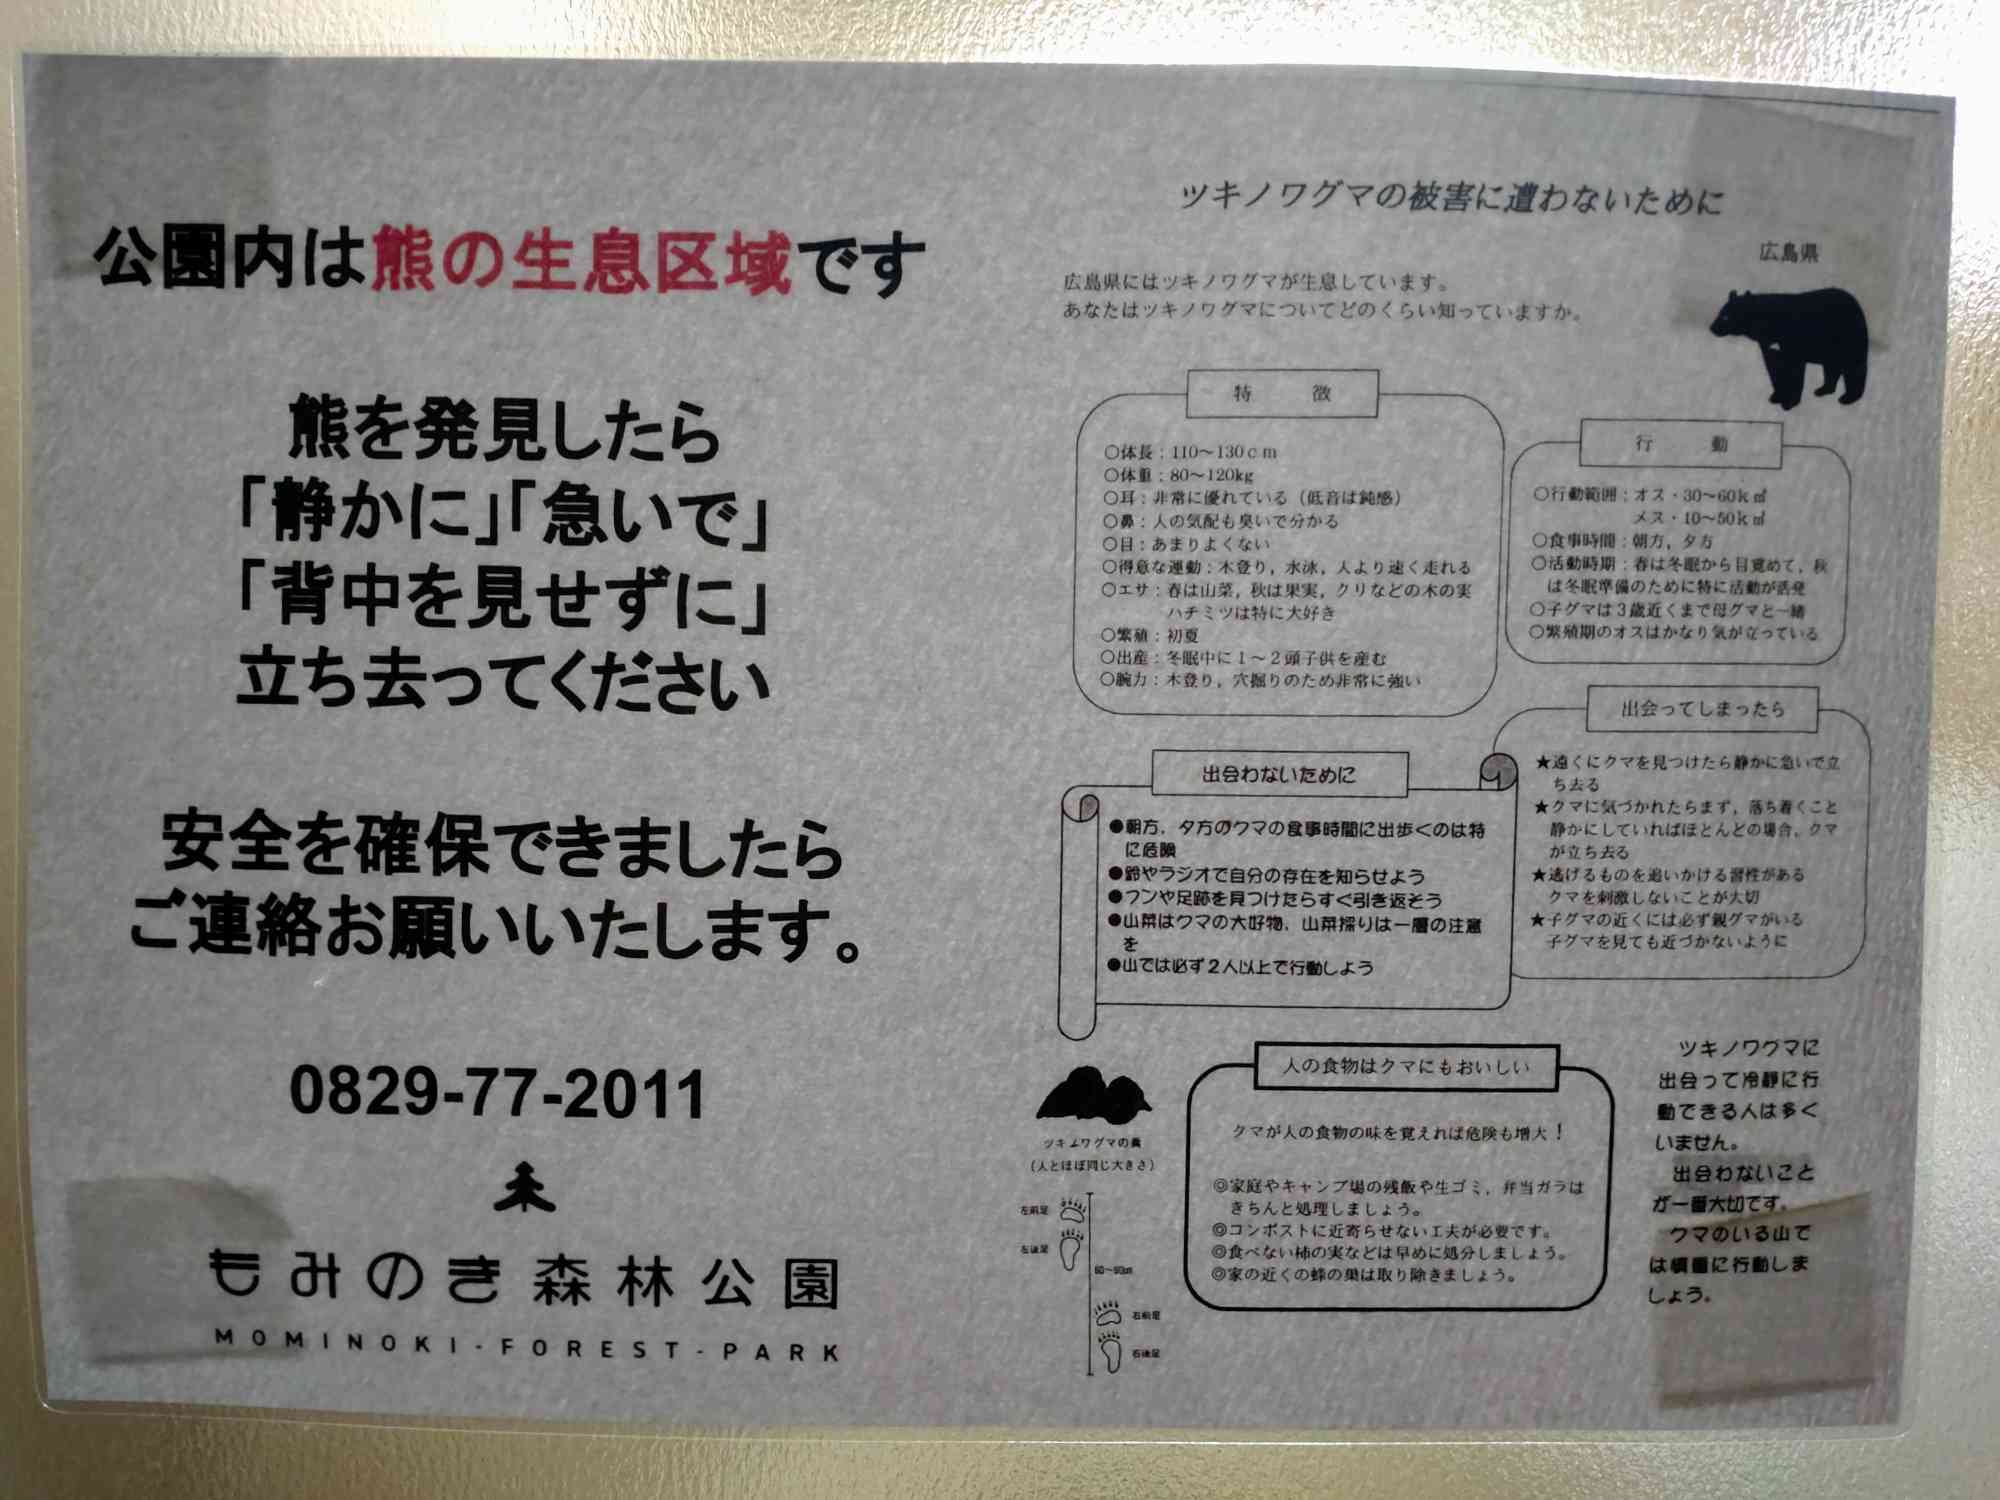 公園内は熊の生息区域です
熊を発見したら
「静かに」「急いで」
「背中を見せずに」
立ち去ってください
安全を確保できましたら
ご連絡お願いいたします。
0829-77-2011
もみのき森林公園
MOMINOKI-FOREST-PARK
ツキノワグマの被害に遭わないために
広島県
広島県にはツキノワグマが生息しています。
あなたはツキノワグマについてどのくらい知っていますか。
特　徴
○体長：110～130ｃｍ
○体重：80～120kg
○耳：非常に優れている（低音は鈍感）
○鼻：人の気配も臭いで分かる
○目：あまりよくない
○得意な運動：木登り，水泳，人より速く走れる
○エサ：春は山菜，秋は果実，クリなどの木の実
ハチミツは特に大好き
○繁殖：初夏
○出産：冬眠中に１～２頭子供を産む
○腕力：木登り，穴掘りのため非常に強い
行　動
○行動範囲：オス・30～60ｋ㎡
メス・10～50ｋ㎡
○食事時間：朝方，夕方
○活動時期：春は冬眠から目覚めて，秋
は冬眠準備のために特に活動が活発
○子グマは３歳近くまで母グマと一緒
○繁殖期のオスはかなり気が立っている
出会ってしまったら
★遠くにクマを見つけたら静かに急いで立
ち去る
★クマに気づかれたらまず，落ち着くこと
静かにしていればほとんどの場合，クマ
が立ち去る
★逃げるものを追いかける習性がある
クマを刺激しないことが大切
★子グマの近くには必ず親グマがいる
子グマを見ても近づかないように
出会わないために
●朝方，夕方のクマの食事時間に出歩くのは特
に危険
●鈴やラジオで自分の存在を知らせよう
●フンや足跡を見つけたらすぐ引き返そう
●山菜はクマの大好物，山菜採りは一層の注意
を
●山では必ず２人以上で行動しよう
ツキノワグマの糞
（人とほぼ同じ大きさ）
左前足
左後足
60～90㎝
右前足
右後足
人の食物はクマにもおいしい
クマが人の食物の味を覚えれば危険も増大！
◎家庭やキャンプ場の残飯や生ゴミ，弁当ガラは
きちんと処理しましょう。
◎コンポストに近寄らせない工夫が必要です。
◎食べない柿の実などは早めに処分しましょう。
◎家の近くの蜂の巣は取り除きましょう。
ツキノワグマに
出会って冷静に行
動できる人は多く
いません。
出会わないこと
が一番大切です。
クマのいる山で
は慎重に行動しま
しょう。